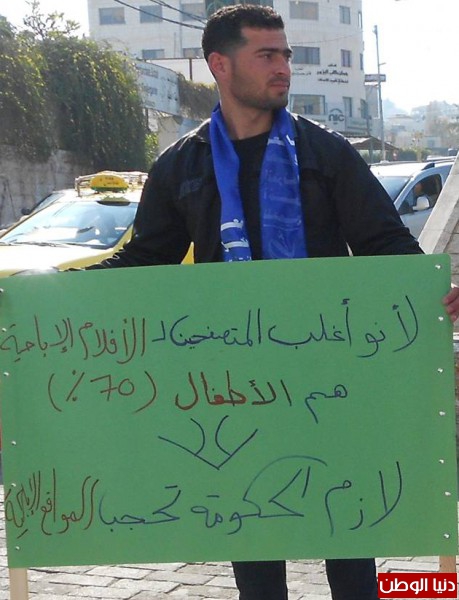 لأنو أغلب المتصفحين لـ الأفلام الإباحية
هم الأطفال (70%)
لازم الحكومة تحجب المواقع الإباحية
دنيا الوطن